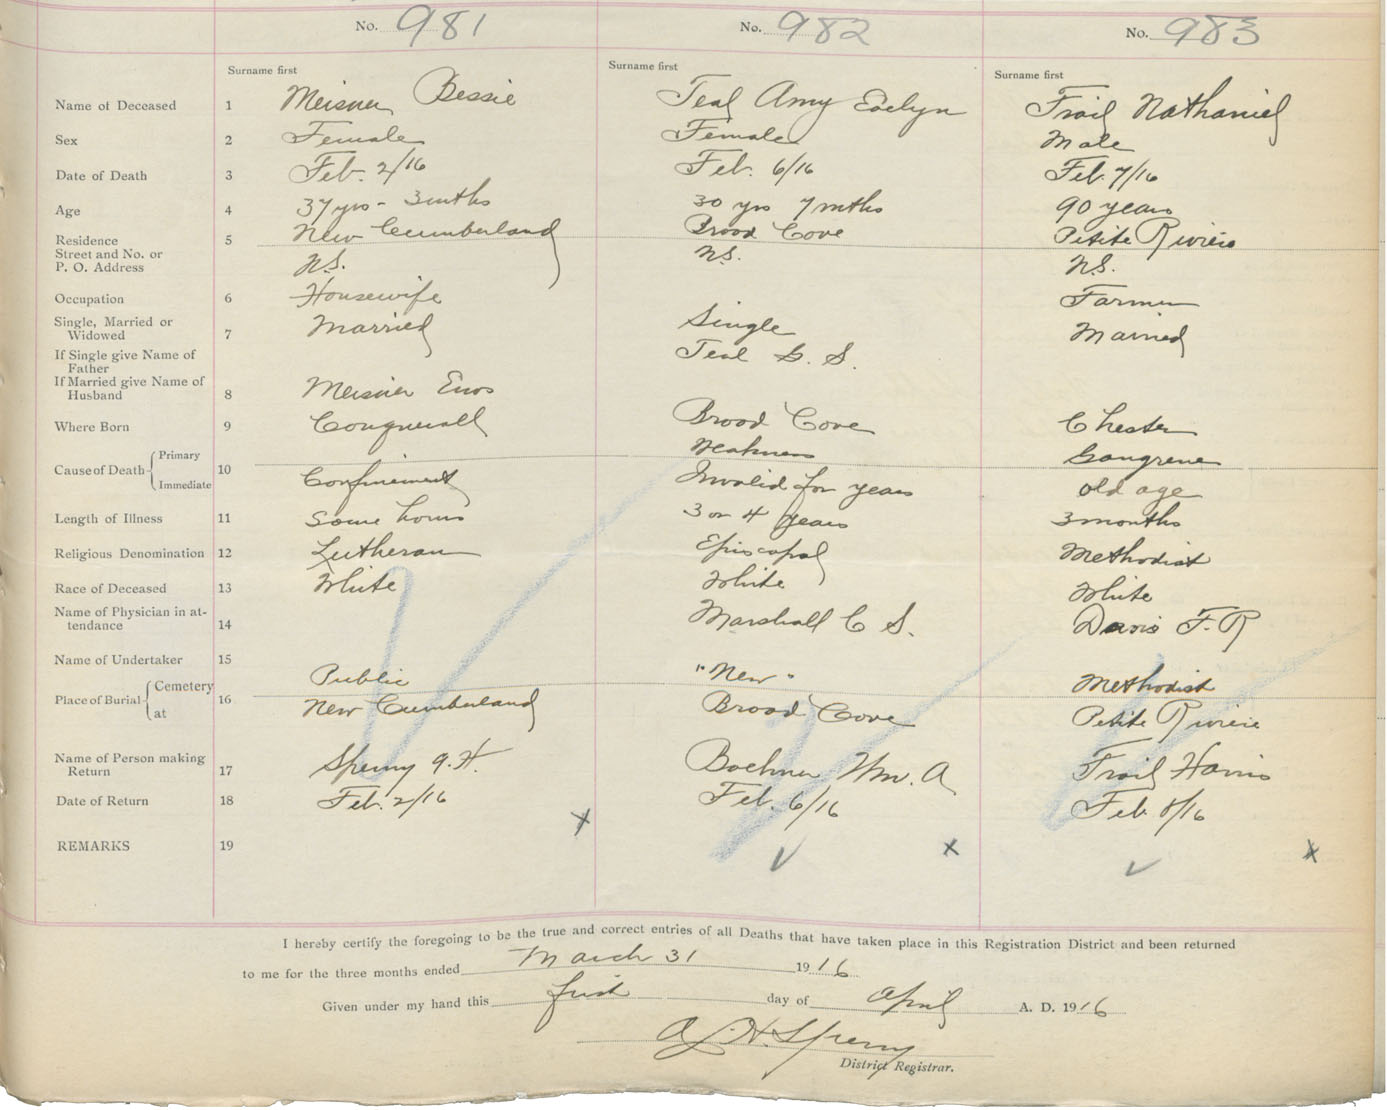 No. 981 No. 982 No. 983
Surname first Surname first Surname first
Name of Deceased 1 Meisner Bessie Teal Amy Evelyn Trail Nathaniel
Sex 2 Female Female Male
Date of Death 3 Feb. 2/16 Feb. 6/16 Feb. 7/16
Age 4 37 yrs - 3 mths 30 yrs 7 mths 90 years
Residence 5 New Cumberland Broad Cove Petite Riviere
Street and No. or
P. O. Address N.S. N.S. N.S.
Occupation 6 Housewife Farmer
Single, Married or
Widowed 7 Married Single Married
If Single give Name of
Father Teal G. S.
If Married give Name of
Husband 8 Meisner Enos
Where Born 9 Conquerall Broad Cove Chester
Cause of Death Primary 10 Weakness Gangrene
Immediate Confinement Invalid for years old age
Length of Illness 11 Some hours 3 or 4 years 3 months
Religious Denomination 12 Lutheran Episcopal Methodist
Race of Deceased 13 White White White
Name of Physician in at-
tendance 14 Marshall C S. Davis F. R
Name of Undertaker 15
Place of Burial Cemetery 16 Public "New" Methodist
at New Cumberland Broad Cove Petite Riviere
Name of Person making
Return 17 Sperry A. H. Boehner Wm. A Trail Harris
Date of Return 18 Feb. 2/16 Feb. 6/16 Feb 8/16
REMARKS 19
I hereby certify the foregoing to be the true and correct entries of all Deaths that have taken place in this Registration District and been returned
to me for the three months ended March 31 1916
Given under my hand this first day of April A. D. 1916
A. H. Sperry
District Registrar.